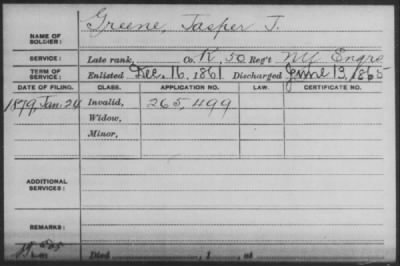 Greene, Jasper J.
NAME OF SOLDIER:
SERVICE: Late rank, Co. K, 50 Reg't NY Engrs
TERM OF SERVICE: Enlisted Dec. 16, 1861 Discharged June 13, 1865
DATE OF FILING. CLASS. APPLICATION NO. LAW. CERTIFICATE NO.
1879, Jan. 24 Invalid, 265,499
Widow,
Minor,
ADDITIONAL SERVICES:
REMARKS:
Died , 1 , at